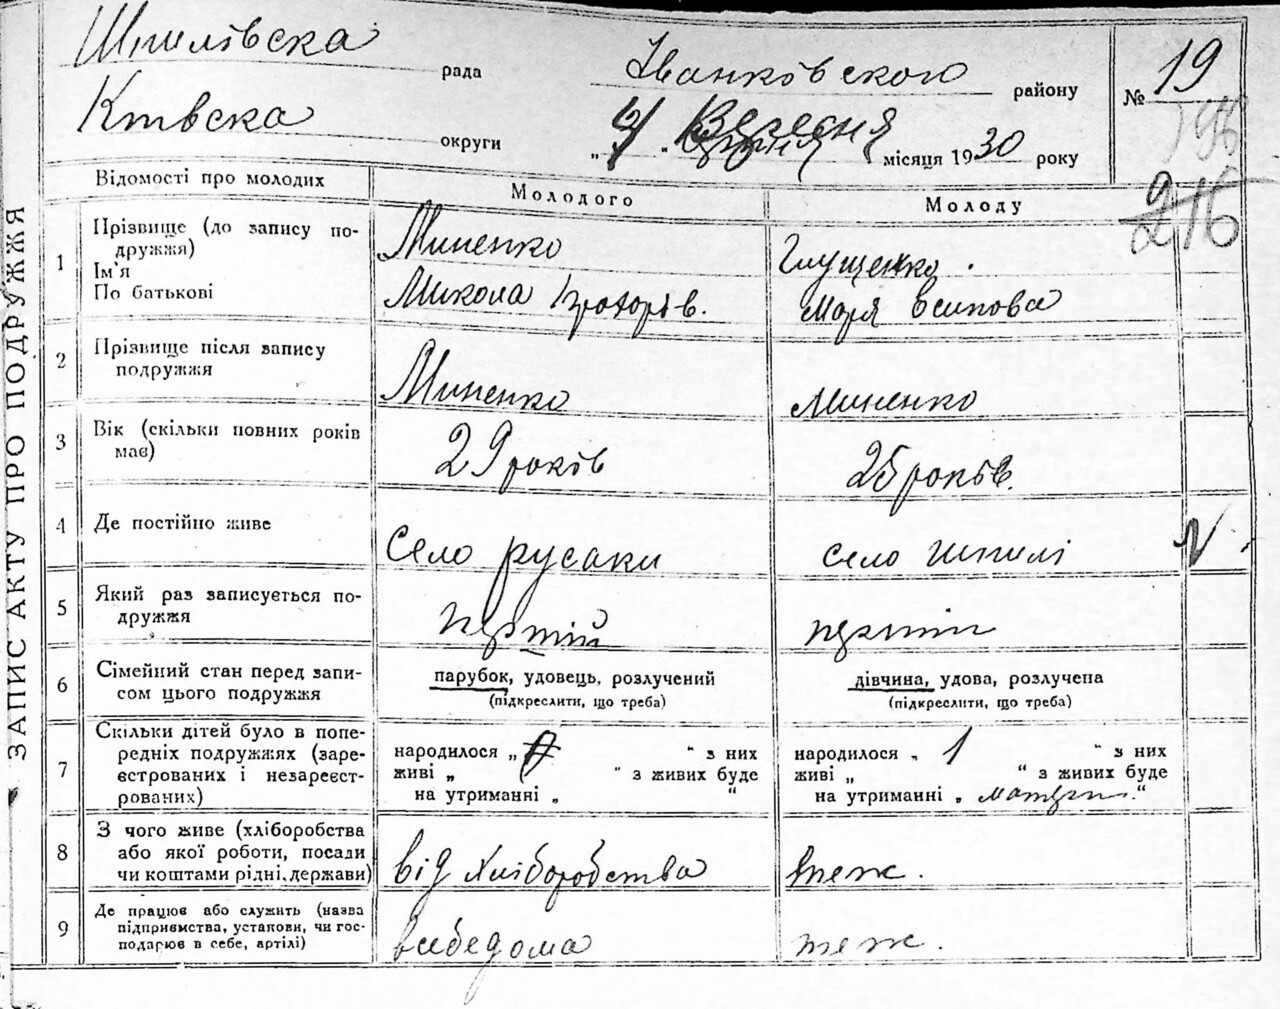 Шпилівска рада Іванковского району № 19
196
Київска округи „4" Вересня місяця 1930 року
216
ЗАПИС АКТУ ПРО ПОДРУЖЖЯ
Відомості про молодих Молодого Молоду
1 Прізвище (до запису подружжя) Миненко Глущенко
Ім'я
По батькові Микола Прохорів. Марія Осипова
2 Прізвище після запису подружжя Миненко Миненко
3 Вік (скільки повних років має) 29 років 25 років.
4 Де постійно живе Село русаки село шпилі
N
5 Який раз записується подружжя перший перший
6 Сімейний стан перед записом цього подружжя парубок, удовець, розлучений дівчина, удова, розлучена
(підкреслити, що треба) (підкреслити, що треба)
7 Скільки дітей було в попередніх подружжях (зареєстрованих і незареєстрованих)
народилося „ " з них народилося „ 1 " з них
живі „ " з живих буде живі „ " з живих буде
на утриманні „ " на утриманні „ матери."
8 З чого живе (хліборобства або якої роботи, посади чи коштами рідні, держави) від хліборобства теж.
9 Де працює або служить (назва підприємства, установи, чи господарює в себе, артілі) в себе дома теж.